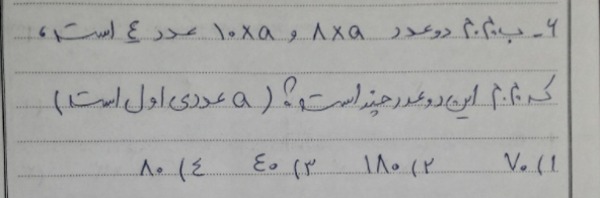 ۶ـ ب.م.م دو عدد ۸×a و ۱۰×a عدد ٤ است،
ک.م.م این دو عدد چند است؟ (a عددی اول است)
۱) ۷۰ ۲) ۱۸۰ ۳) ٤۰ ٤) ۸۰